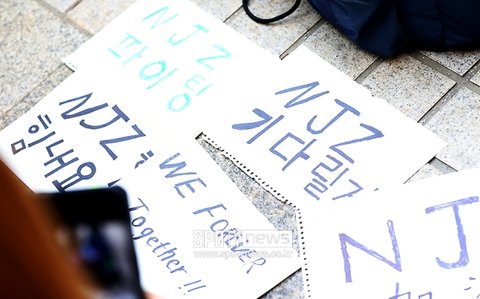 NJZ
파이팅
NJZ
기다릴
NJZ
힘내요
WE FOREVER
Together !!
NJ
SPOTVnews